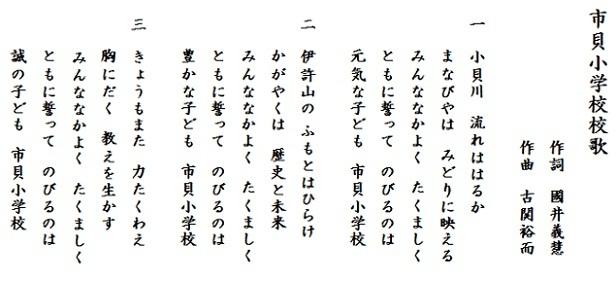 市貝小学校校歌
作詞 國井義慧
作曲 古関裕而
一 小貝川 流れははるか
まなびやは みどりに映える
みんななかよく たくましく
ともに誓って のびるのは
元気な子ども 市貝小学校
二 伊許山の ふもとはひらけ
かがやくは 歴史と未来
みんななかよく たくましく
ともに誓って のびるのは
豊かな子ども 市貝小学校
三 きょうもまた 力たくわえ
胸にだく 教えを生かす
みんななかよく たくましく
ともに誓って のびるのは
誠の子ども 市貝小学校